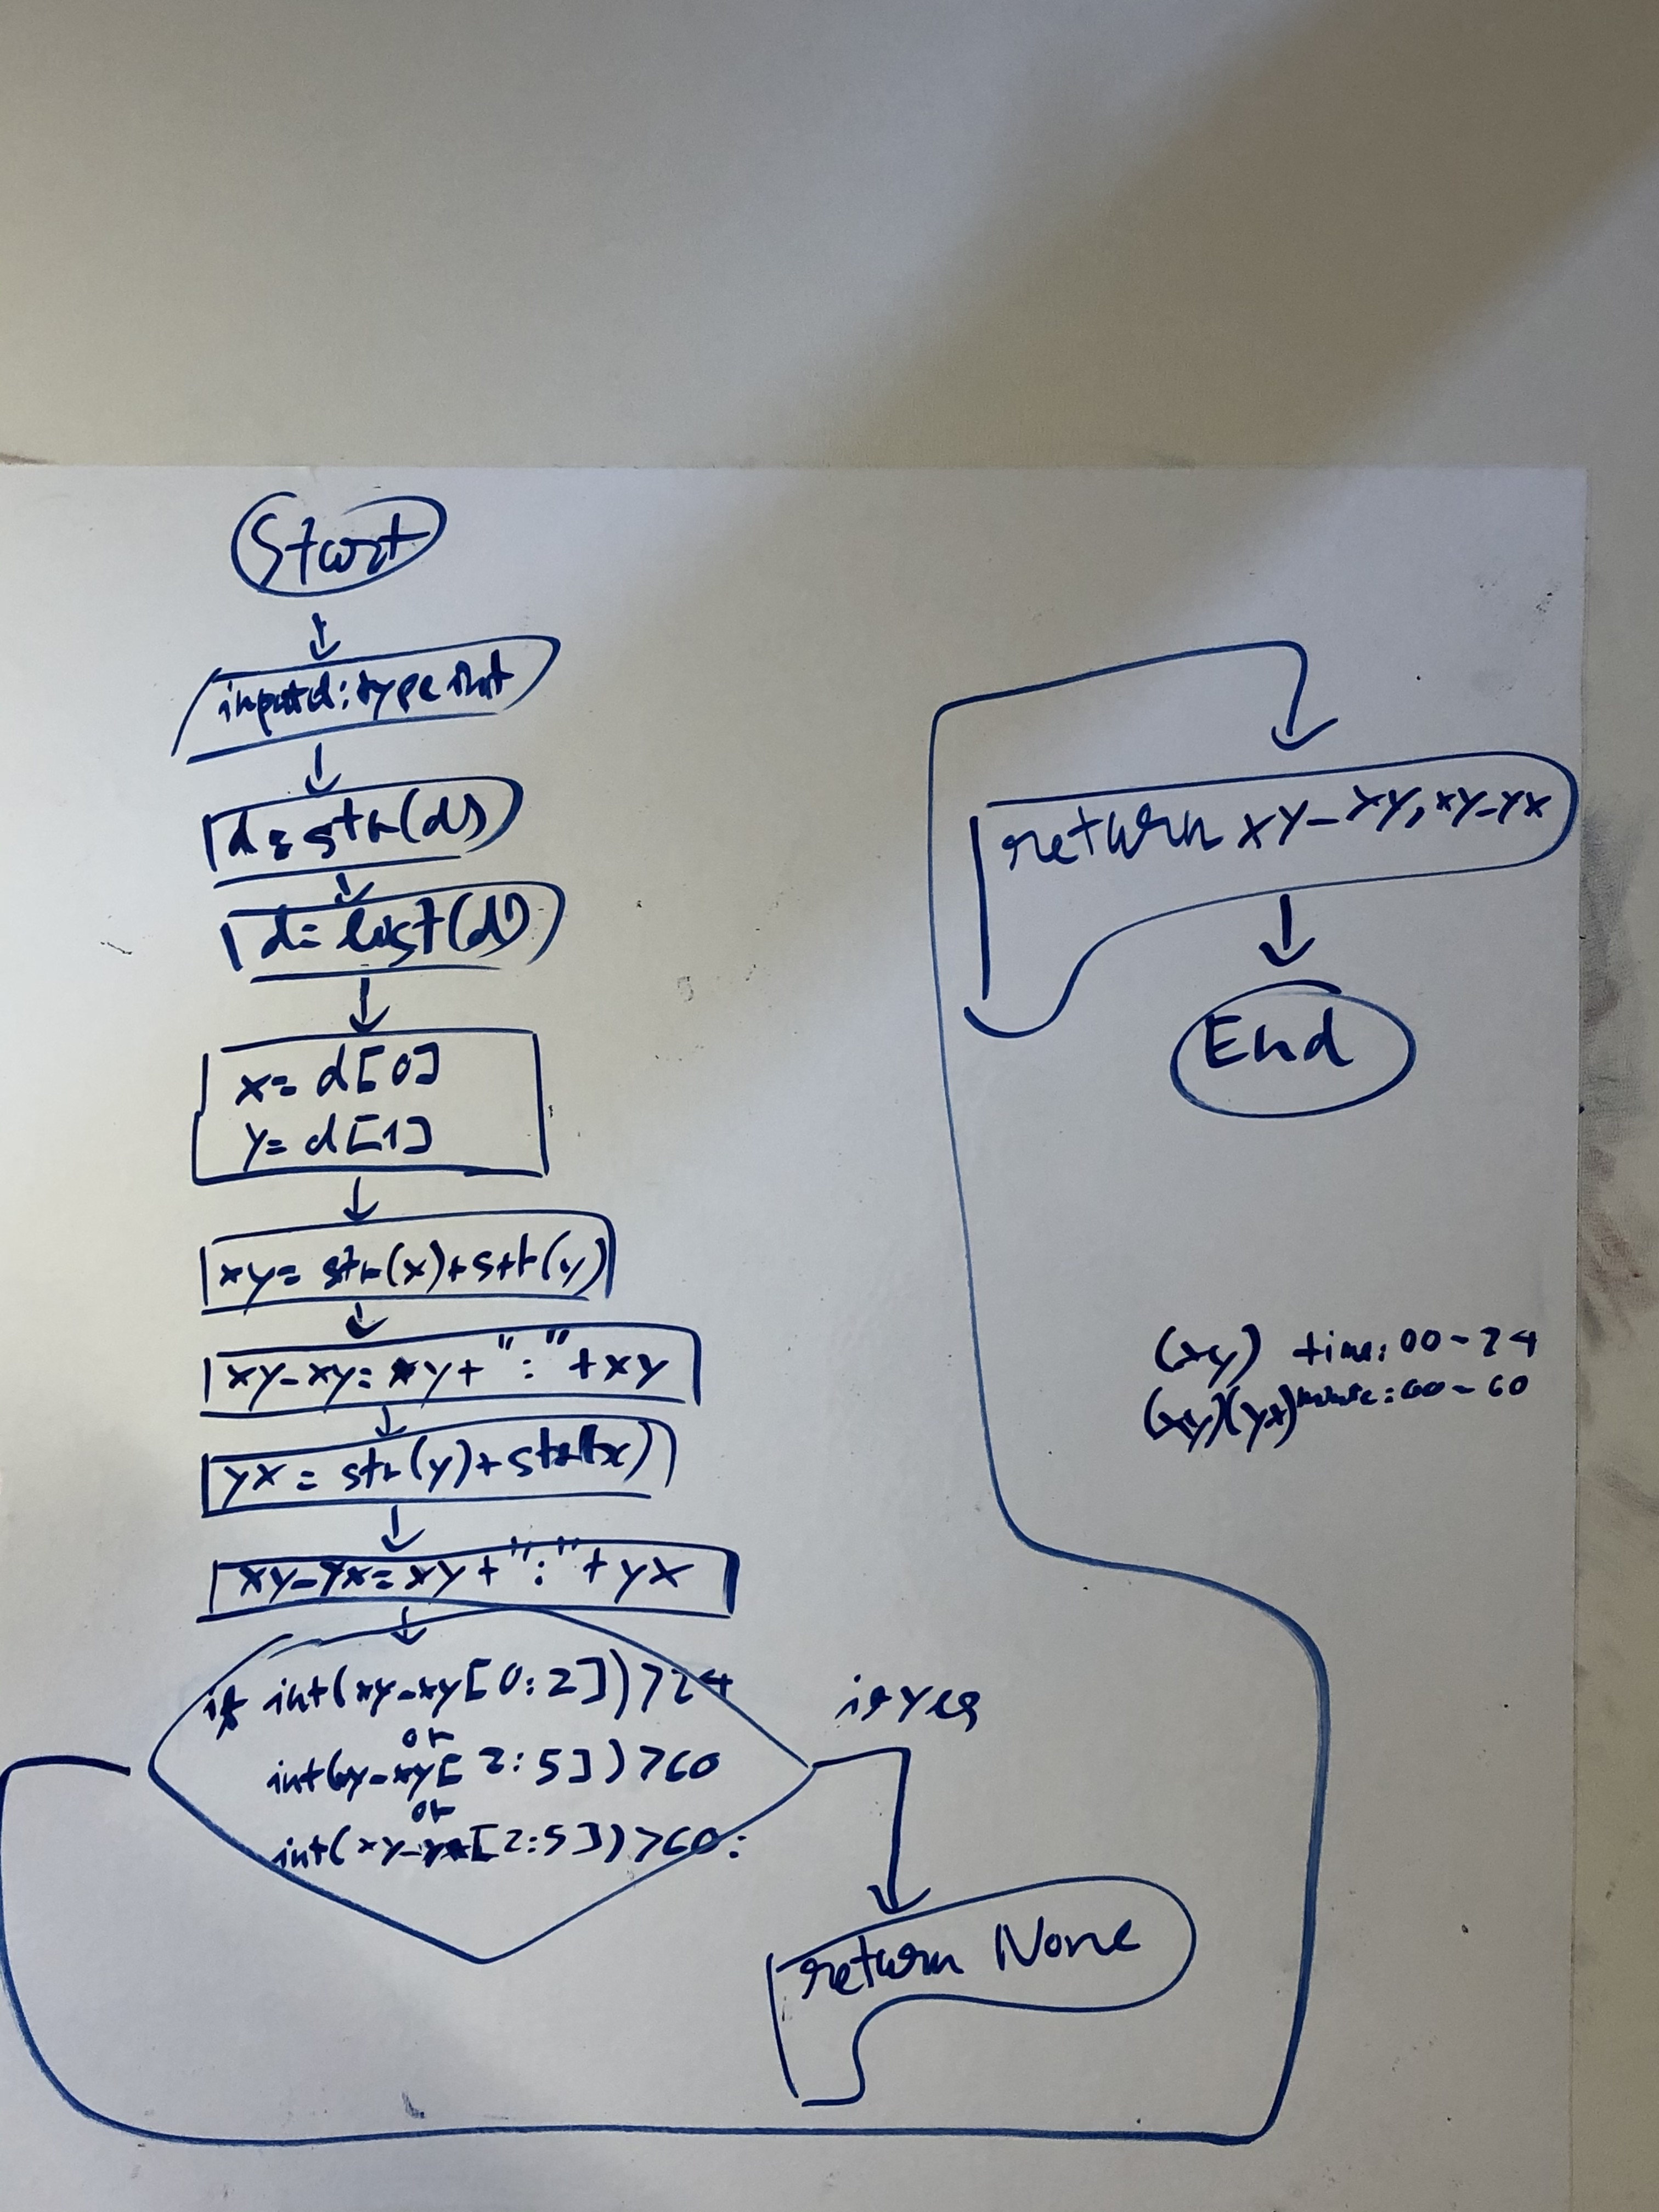 Start
input d: type int
d = str(d)
d = list(d)
x = d[0]
y = d[1]
xy = str(x)+str(y)
xy_xy = xy+":"+xy
yx = str(y)+str(x)
xy_yx = xy+":"+yx
if int(xy_xy[0:2])>24
or
int(xy_xy[2:5])>60
or
int(xy_yx[2:5])>60:
if yes
return None
return xy_xy, xy_yx
End
(xy) time: 00-24
(xy)(yx) minute: 00-60